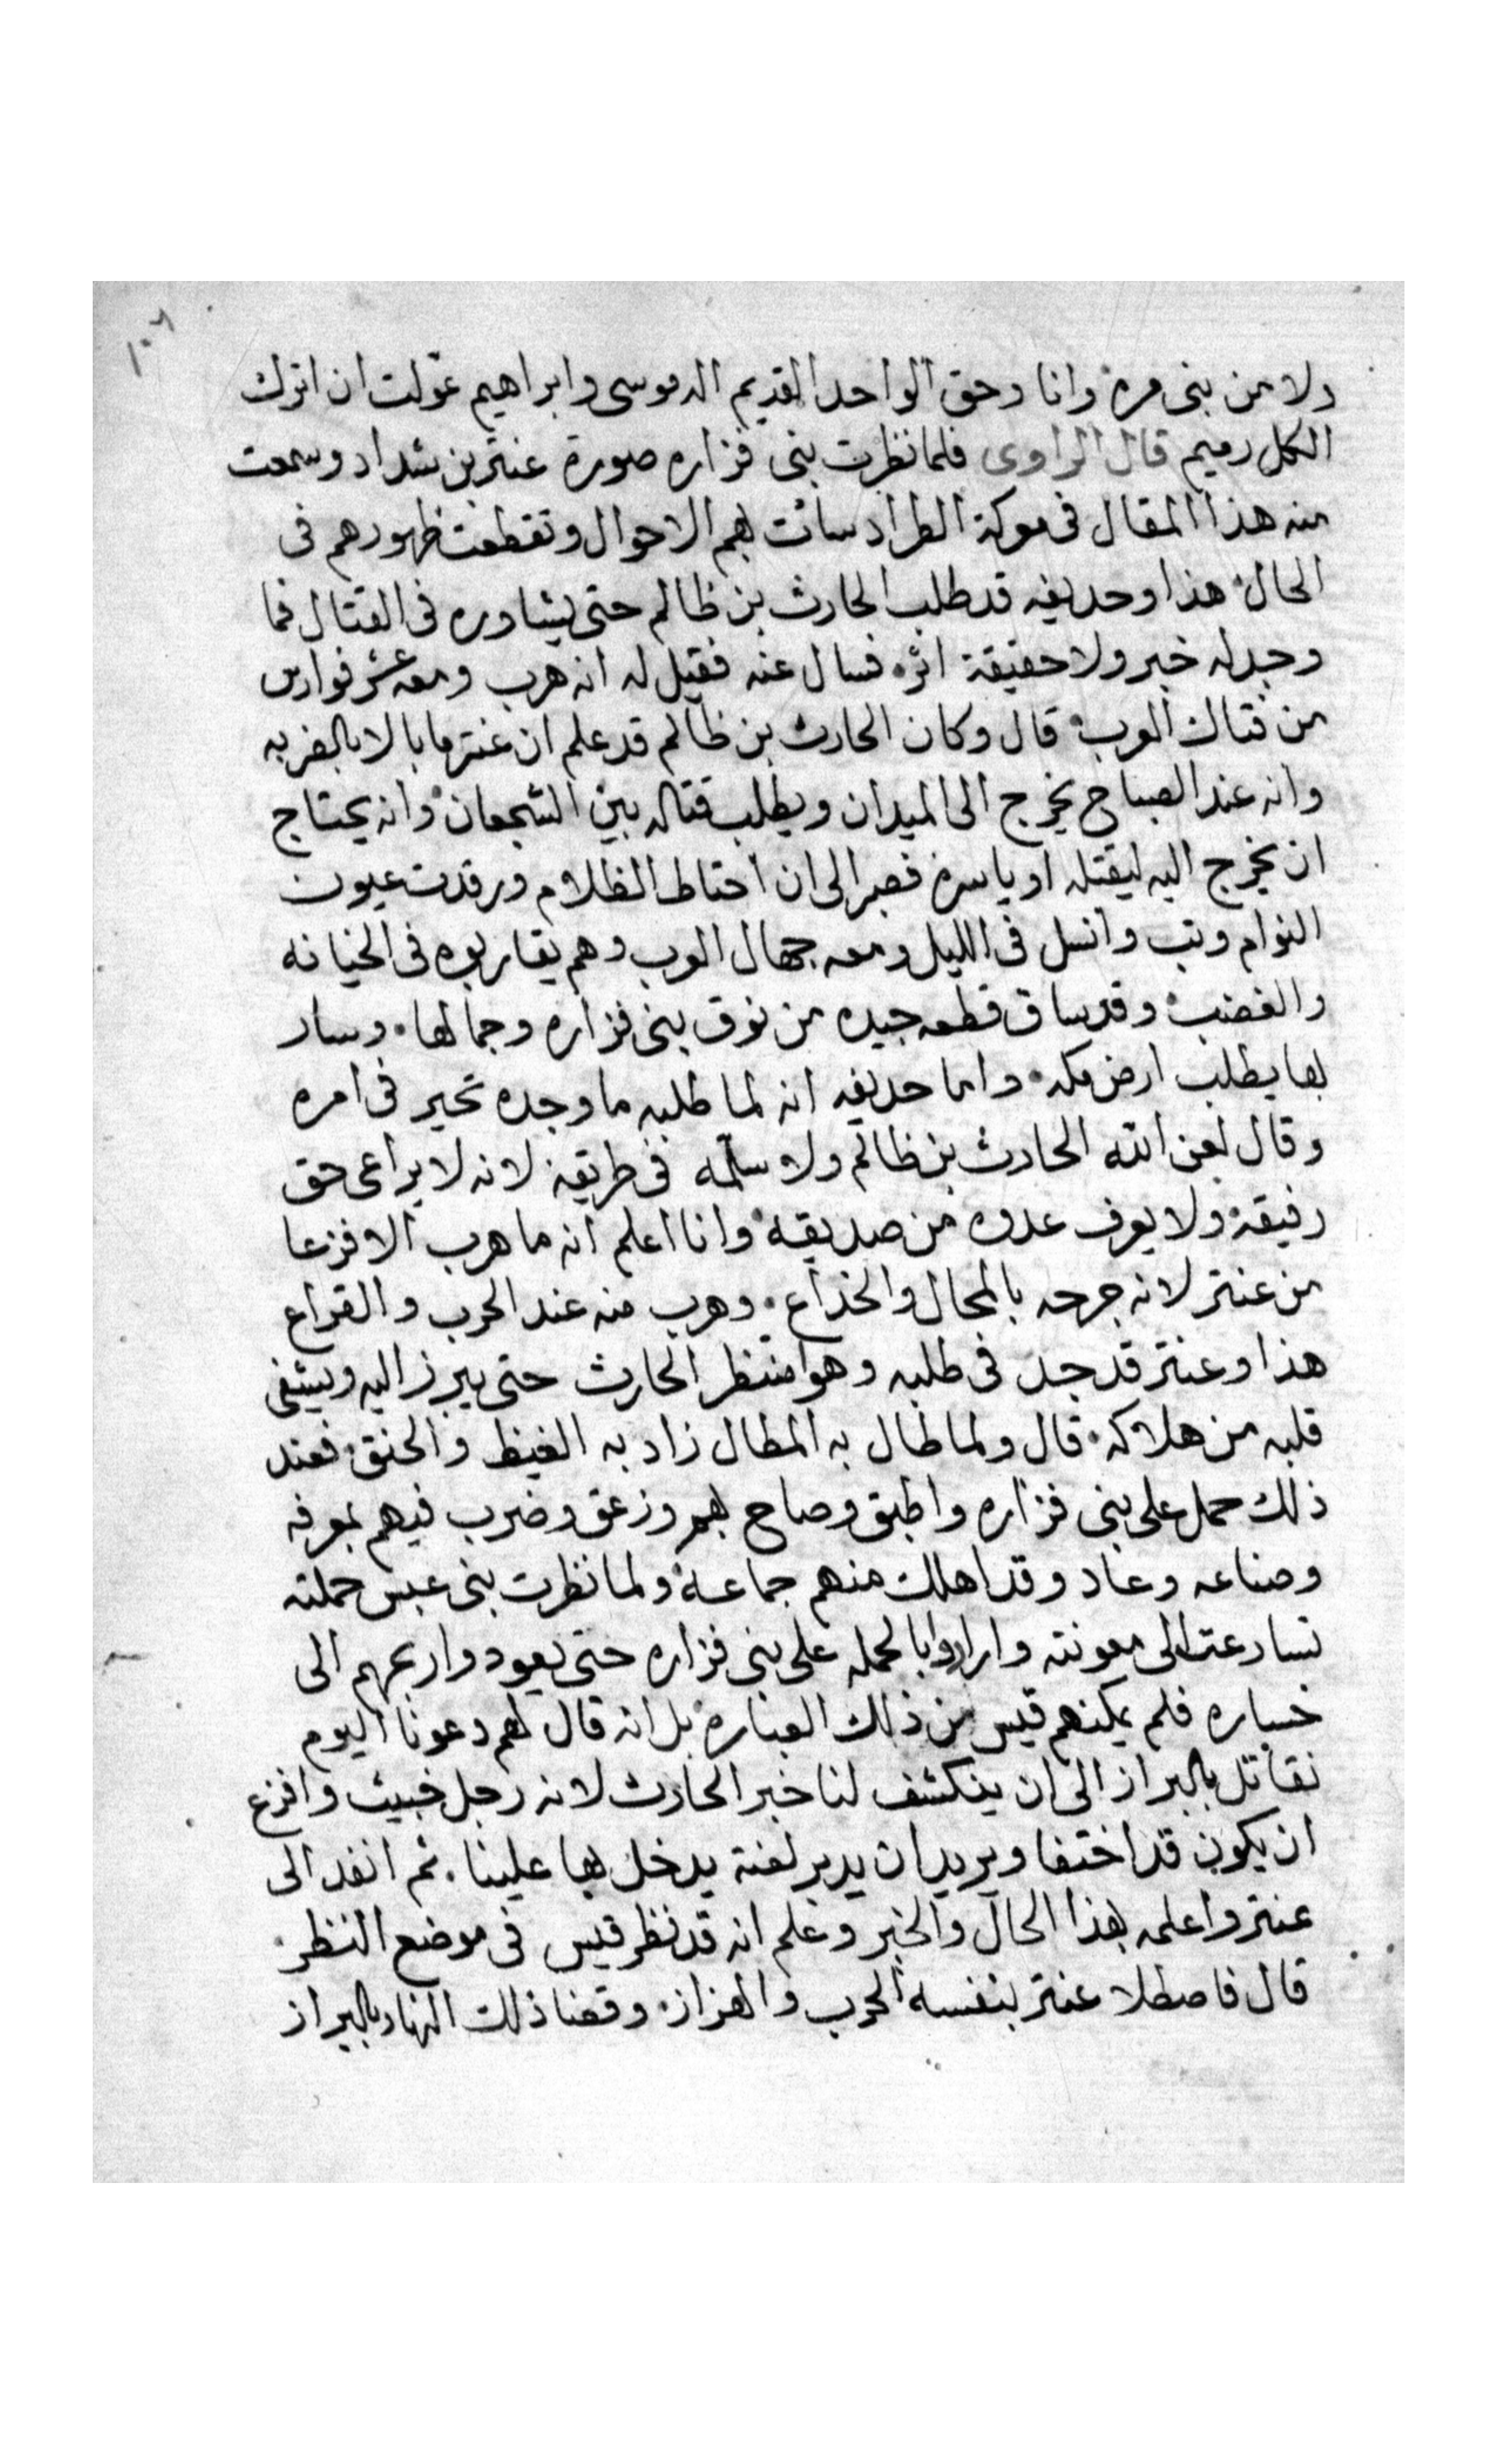 ١٠٦
ولا من بنى مره وانا وحق الواحد القديم اله موسى وابراهيم عولت ان اترك
الكل رميم قال الراوى فلما نظرت بنى فزاره صورة عنتر بن شداد وسمعت
منه هذا المقال فى معركة الطراد سائت بهم الاحوال وتقطعت ظهورهم فى
الحال هذا وحديفه قد طلب الحارث بن ظالم حتى يشاوره فى القتال فما
وجد له خبر ولا حقيقة اثر فسال عنه فقيل له انه هرب ومعه عشر فوارس
من فتاك العرب قال وكان الحارث بن ظالم قد علم ان عنتر ما بالا بالضربه
وانه عند الصباح يخرج الى الميدان ويطلب قتاله بين الشجعان وانه يحتاج
ان يخرج اليه ليقتله او ياسره فصبر الى ان احتاط الظلام ورقدت عيون
النوام وتب وانسل فى الليل ومعه جهال العرب وهم يقاربوه فى الخيانه
والغضب وقد ساق قطعه جيده من نوق بنى فزاره وجمالها وسار
بها يطلب ارض مكه واما حديفه انه لما طلبه ما وجده تحير فى امره
وقال لعن الله الحارث بن ظالم ولا سلمه فى طريقه لانه لا يراعى حق
رفيقه ولا يعرف عدوه من صديقه وانا اعلم انه ما هرب الا فزعا
من عنتر لانه جرحه بالمحال والخداع وهرب منه عند الحرب والقراع
هذا وعنتر قد جد فى طلبه وهو منتظر الحارث حتى يبرز اليه ويشفى
قلبه من هلاكه قال ولما طال به المطال زاد به الغيظ والحنق فعند
ذلك حمل على بنى فزاره واطبق وصاح بهم وزعق وضرب فيهم بمعرفه
وصناعه وعاد وقد اهلك منهم جماعة ولما نظرت بنى عبس حملته
تسارعت الى معونته وارادوا بالحمله على بنى فزاره حتى يعود واربحهم الى
خساره فلم يمكنهم قيس من ذلك العباره بل انه قال لهم دعونا اليوم
نقاتل بالبراز الى ان ينكشف لنا خبر الحارث لانه رجل خبيث وافزع
ان يكون قد اختفا ويريد ان يدبر لعنة يدخل بها علينا ثم انفد الى
عنتر واعلمه بهذا الحال والخبر وعلم انه قد نظر قيس فى موضع النظر
قال فاصطلا عنتر بنفسه الحرب والهزاز وقضا ذلك النهار بالبراز